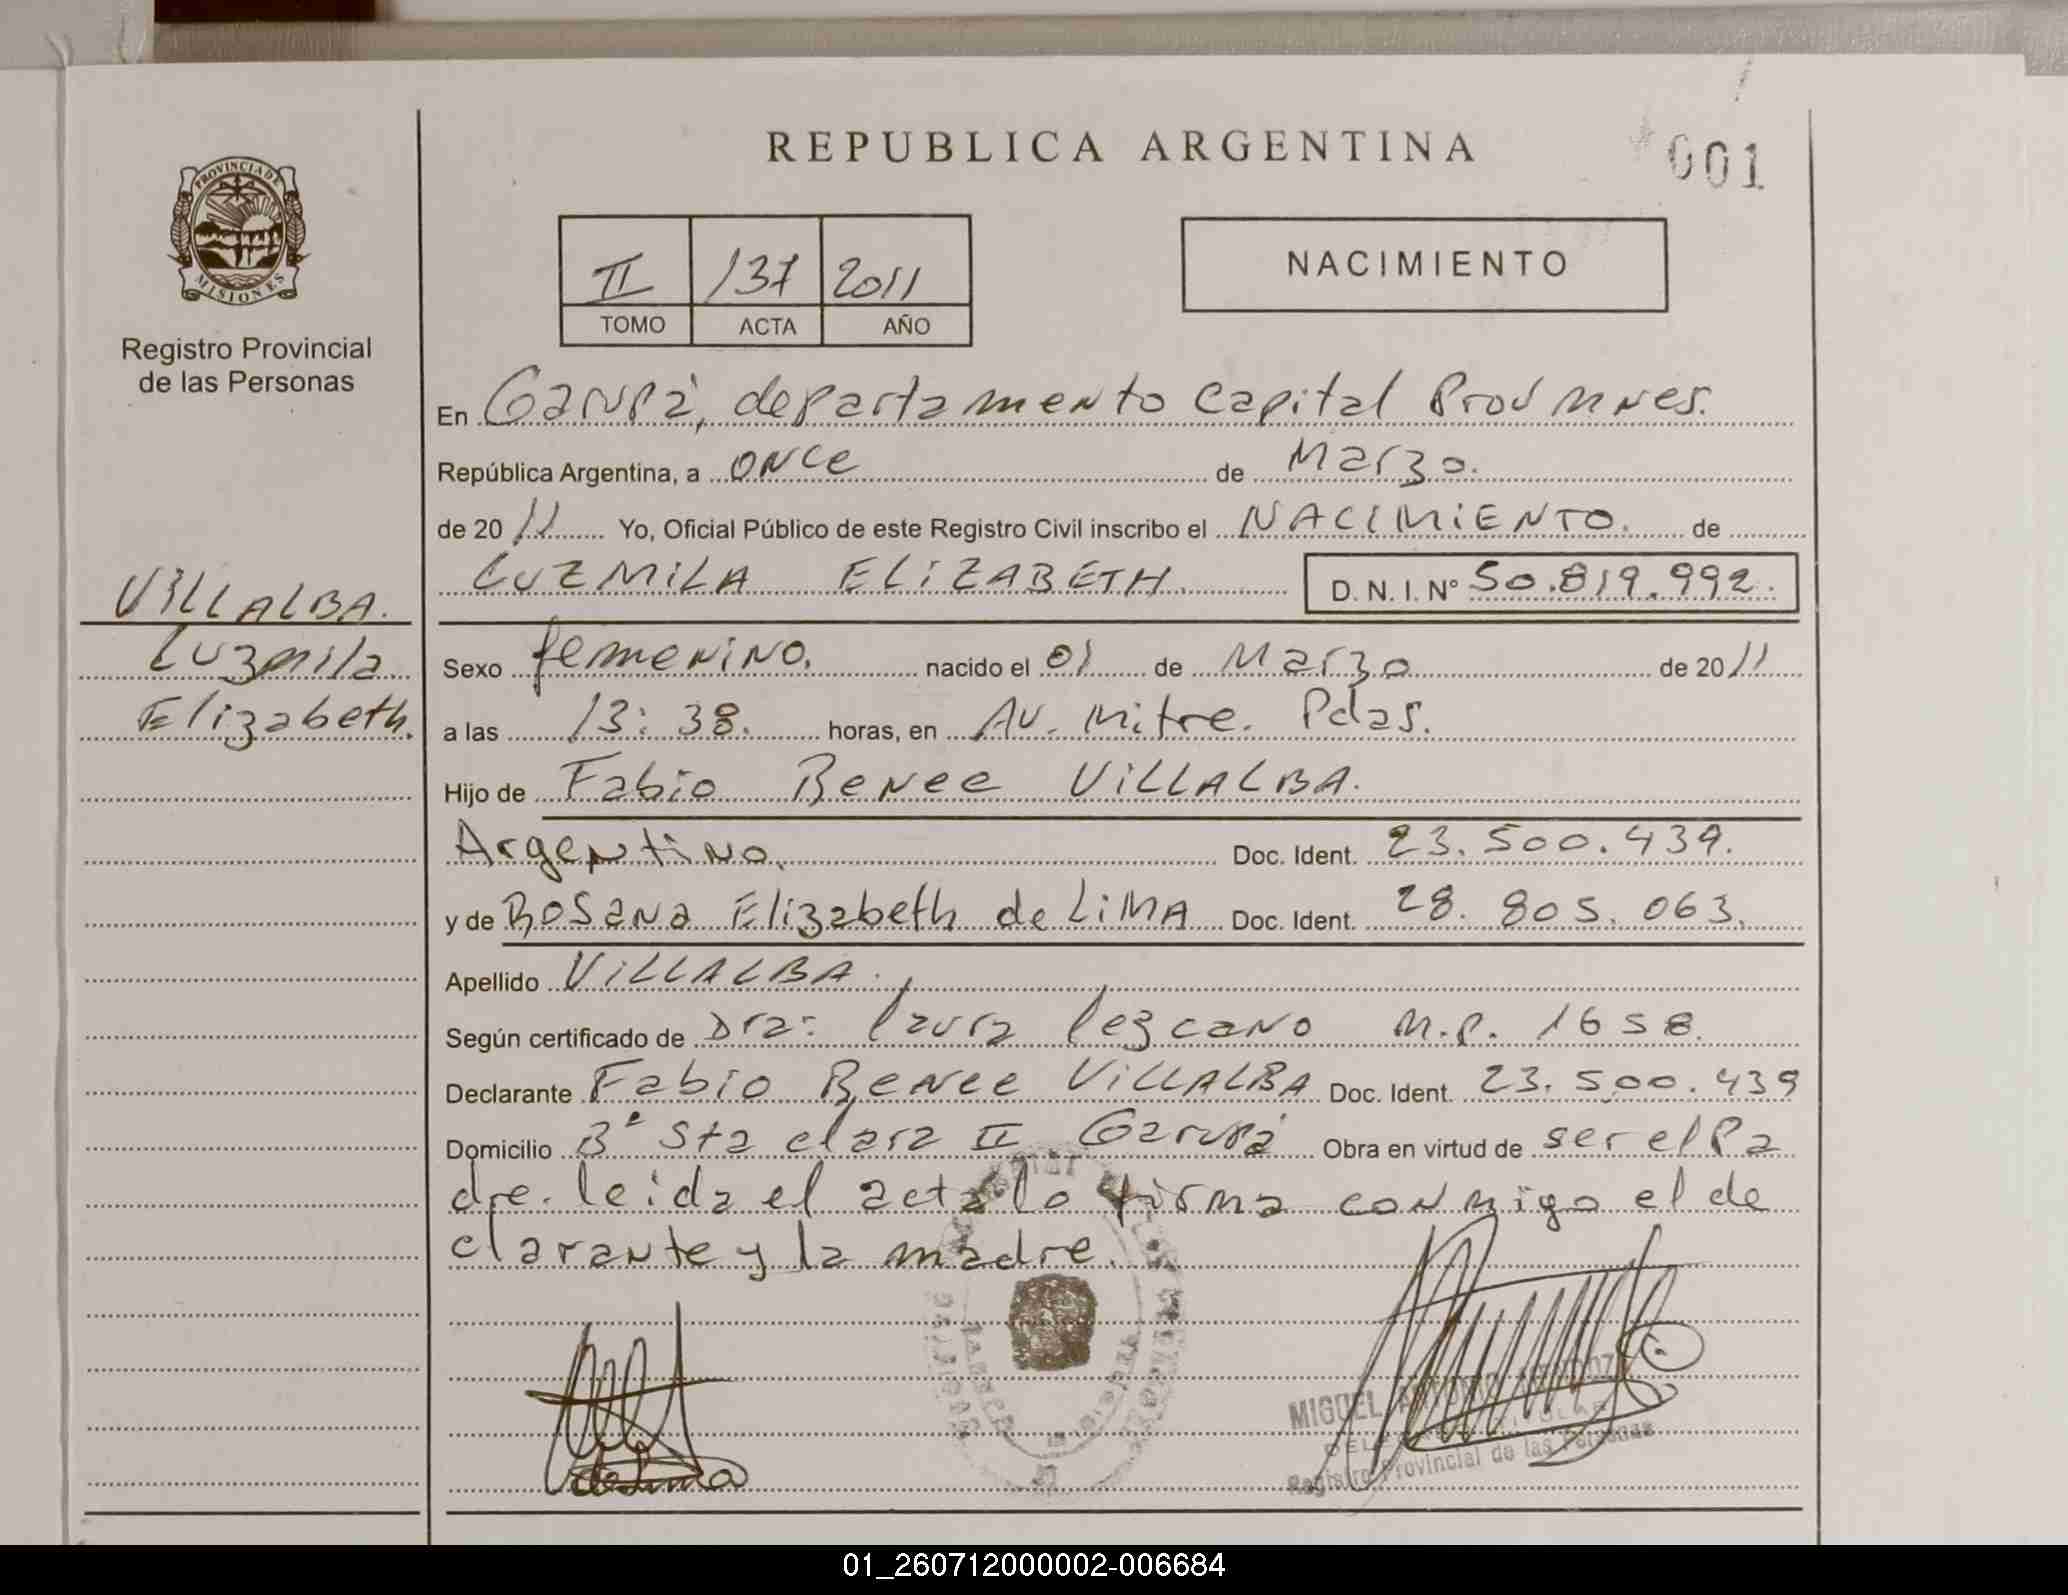 REPUBLICA ARGENTINA
001
PROVINCIA DE
MISIONES
Registro Provincial
de las Personas
II 137 2011
TOMO ACTA AÑO
NACIMIENTO
En Garupá, departamento Capital Prov Mnes.
República Argentina, a once de Marzo.
de 2011 Yo, Oficial Público de este Registro Civil inscribo el NACIMIENTO. de
LUZMILA ELIZABETH. D. N. I. Nº 50.819.992.
VILLALBA.
Luzmila
Elizabeth.
Sexo femenino. nacido el 01 de Marzo de 2011
a las 13:38. horas, en Av. Mitre. Pdas.
Hijo de Fabio Renee VILLALBA.
Argentino. Doc. Ident. 23.500.439.
y de Rosana Elizabeth de LIMA Doc. Ident. 28.805.063.
Apellido VILLALBA.
Según certificado de Dra: Laura Lezcano M.P. 1658.
Declarante Fabio Renee VILLALBA Doc. Ident. 23.500.439
Domicilio Bº Sta Clara II Garupá Obra en virtud de ser el Pa
dre. leida el acta lo firma conmigo el de
clarante y la madre.
de Lima
MIGUEL ANTONIO MENDOZA
Registro Provincial de las Personas
01_260712000002-006684